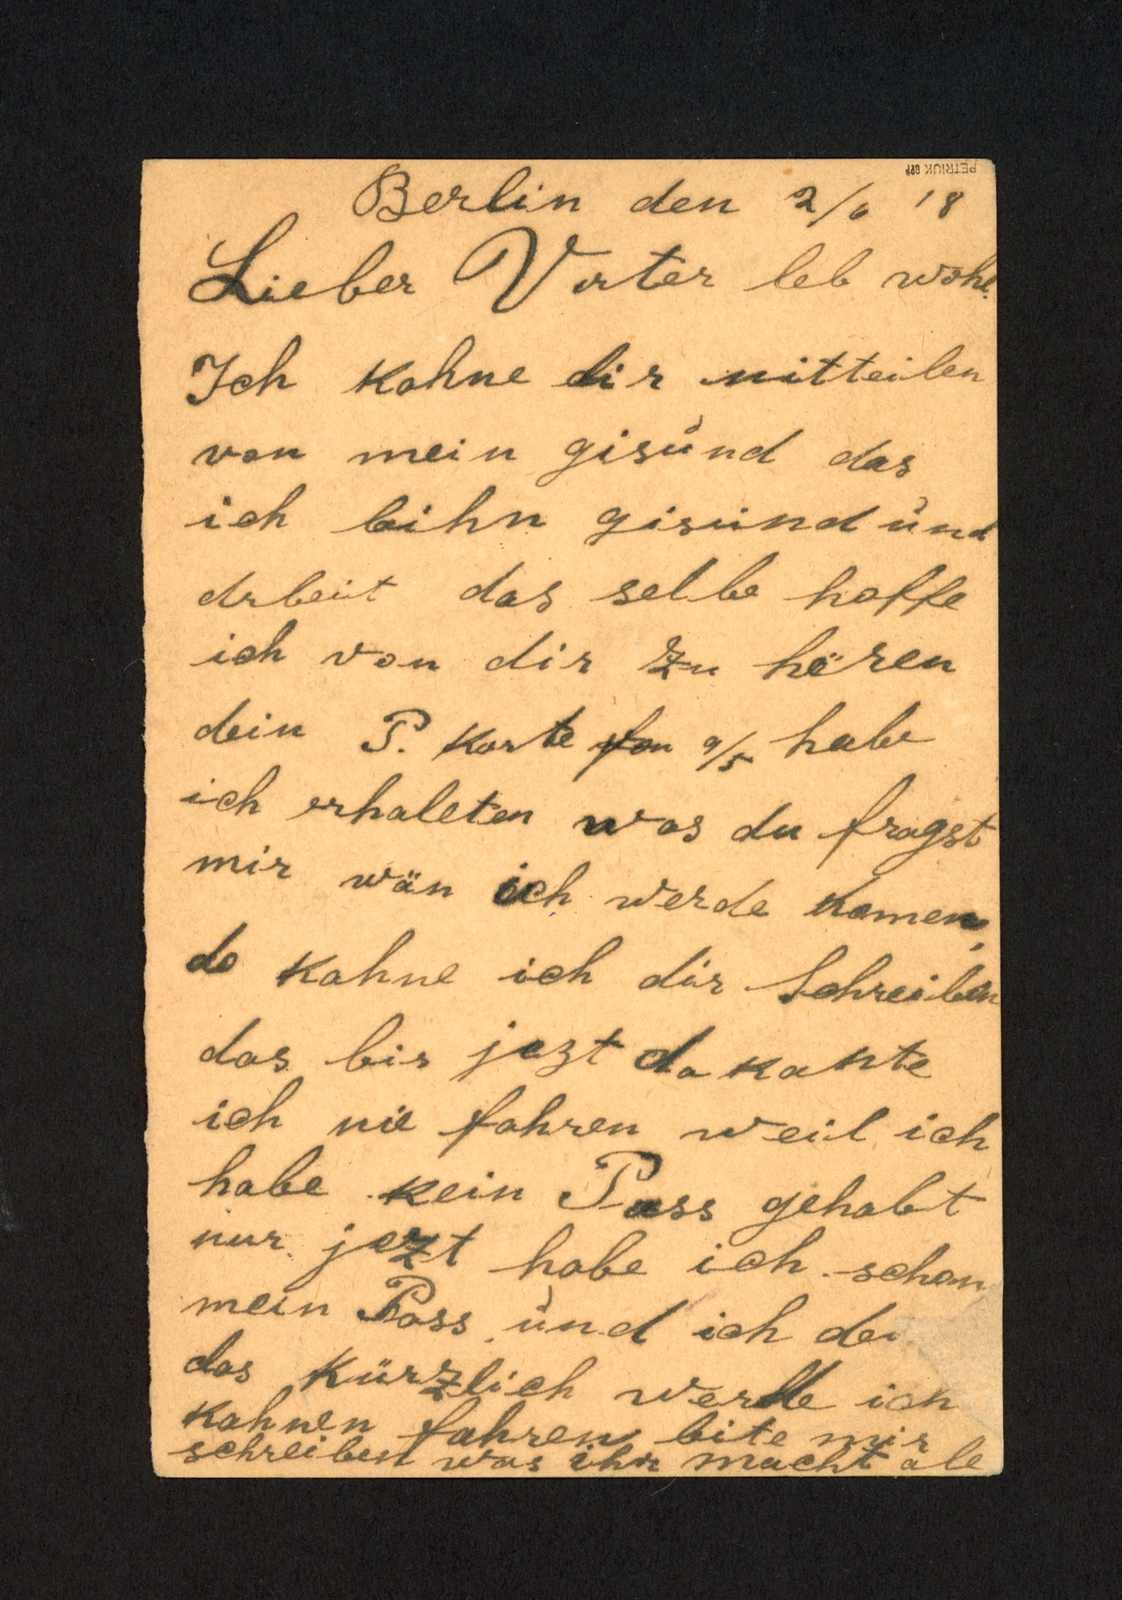 PETRIUK BPP
Berlin den 2/6 18
Lieber Vater leb wohl.
Ich kahne dir mitteilen
von mein gisünd das
ich bihn gisund ünd
arbeit das selbe hoffe
ich von dir zu hören
dein P. Karte fon 9/5 habe
ich erhaleten was du fragst
mir wän ich werde komen,
do kahne ich dir schreiben
das bis jezt da kante
ich nie fahren weil ich
habe kein Pass gehabt
nur jezt habe ich schon
mein Pass ünd ich
das kürzlich werde ich
kahnen fahren bite mir
schreiben was ihr macht ale